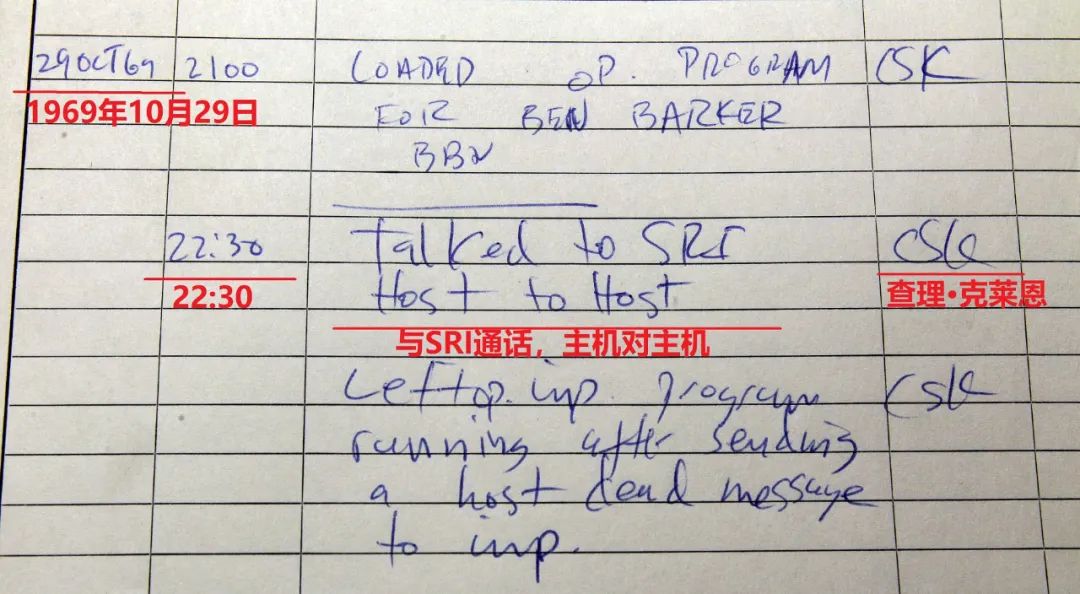 29OCT69 2100 LOADED OP. PROGRAM CSK
1969年10月29日
FOR BEN BARKER
BBN
22:30 Talked to SRI CSK
Host to Host
22:30
查理·克莱恩
与SRI通话，主机对主机
Left op. imp. program CSK
running after sending
a host dead message
to imp.